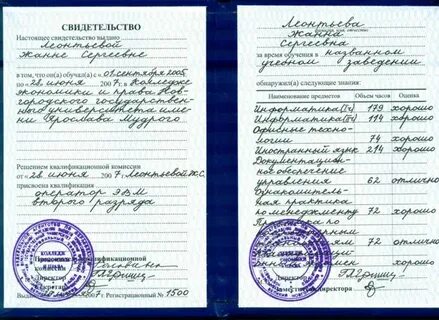 СВИДЕТЕЛЬСТВО
Настоящее свидетельство выдано
Леонтьевой
Жанне Сергеевне
в том, что он(а) обучал(а)сь с 01 сентября 2005
по 28 июня 2007 г. в Колледже
экономики и права Нов-
городского государствен-
ного университета име-
ни Ярослава Мудрого
Решением квалификационной комиссии
от «28 июня 2007 г. Леонтьевой Ж.С.
присвоена квалификация
оператор ЭВМ
второго разряда
квалификационной
комиссии
Директор
Секретарь
Регистрационный № 1500
Леонтьева
Жанна
Сергеевна
за время обучения в названном
учебном заведении
обнаружил(а) следующие знания:
Наименование предметов Объем часов Оценка
Информатика 179 хорошо
Информатика 114 хорошо
Офисные техно-
логии 74 хорошо
Иностранный язык 214 хорошо
Документацион-
ное обеспечение
управления 62 отлично
Ознакомитель-
ная практика
по менеджменту 72 хорошо
Практика по
72 отлично
хорошо
директора